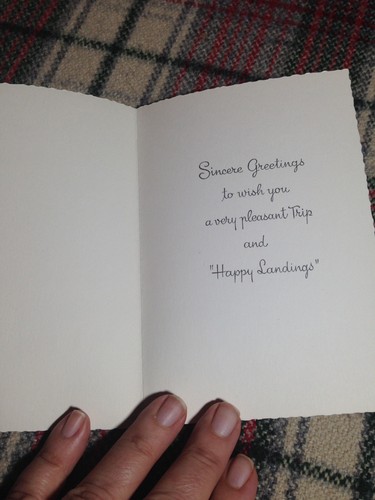 Sincere Greetings
to wish you
a very pleasant Trip
and
"Happy Landings"